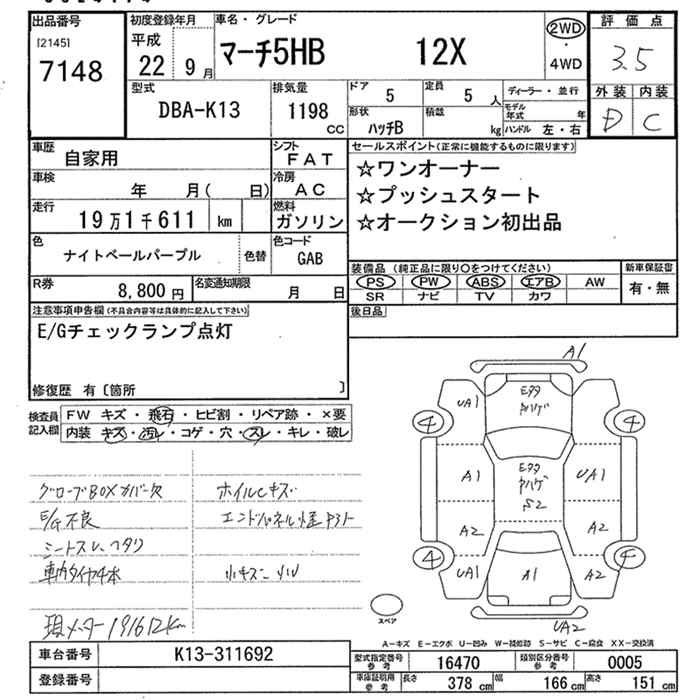 出品番号
[2145]
7148
初度登録年月
平成
22 9月
車名・グレード
マーチ5HB 12X
2WD
・
4WD
評価点
3.5
外装 内装
D C
型式
DBA-K13
排気量
1198
CC
ドア
5
定員
5 人
形状
ハッチB
積載
kg
ディーラー・並行
モデル年式 年
ハンドル 左・右
車歴
自家用
シフト
FAT
車検
年 月( 日)
冷房
AC
走行
19万1千611 km
燃料
ガソリン
色
ナイトベールパープル
色替
色コード
GAB
R券
8,800円
名変通知期限
月 日
セールスポイント(正常に機能するものに限ります)
☆ワンオーナー
☆プッシュスタート
☆オークション初出品
装備品(純正品に限り○をつけてください)
PS PW ABS エアB AW
SR ナビ TV カワ
新車保証書
有・無
後日品
注意事項申告欄(不具合内容等は具体的に記入して下さい)
E/Gチェックランプ点灯
修復歴 有〔箇所 〕
検査員記入欄
FW キズ・飛石・ヒビ割・リペア跡・×要
内装 キズ・汚レ・コゲ・穴・スレ・キレ・破レ
グローブBOXカバー欠
E/G不良
シートスレ、ヘタリ
車内タイヤ4本
現メーター191612km
ホイルキズ
小キズ
A1
UA1
エクク
ヤハゲ
4
4
A1
エクク
ヤハゲ
S2
UA1
A2
A2
4
4
UA1
A1
A2
UA2
スペア
A-キズ E-エクボ U-凹み W-補修跡 S-サビ C-腐食 XX-交換済
車台番号
K13-311692
登録番号
型式指定番号
参考
16470
類別区分番号
参考
0005
車庫証明用
参考
長さ 378 cm
幅 166 cm
高さ 151 cm